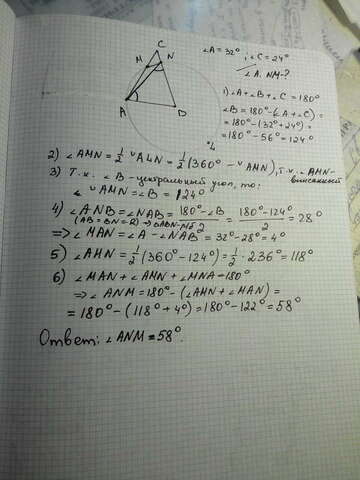 ∠A = 32°, ∠C = 24°
∠A. NM - ?
C
M
N
A
B
1) ∠A + ∠B + ∠C = 180°
∠B = 180° - (∠A + ∠C) =
= 180° - (32° + 24°) =
= 180° - 56° = 124°
°L
2) ∠AMN = 1/2 ◡ALN = 1/2 (360° - ◡AMN), т.к. ∠AMN-
вписанный
3) Т.к. ∠B - центральный угол, то:
◡AMN = ∠B = 124°
4) ∠ANB = ∠NAB = (180° - ∠B)/2 = (180° - 124°)/2 = 28°
(AB = BN = R) → ΔABN - р/б
=> ∠MAN = ∠A - ∠NAB = 32° - 28° = 4°
5) ∠AMN = 1/2 (360° - 124°) = 1/2 · 236° = 118°
6) ∠MAN + ∠AMN + ∠MNA = 180°
=> ∠ANM = 180° - (∠AMN + ∠MAN) =
= 180° - (118° + 4°) = 180° - 122° = 58°
Ответ: ∠ANM = 58°.